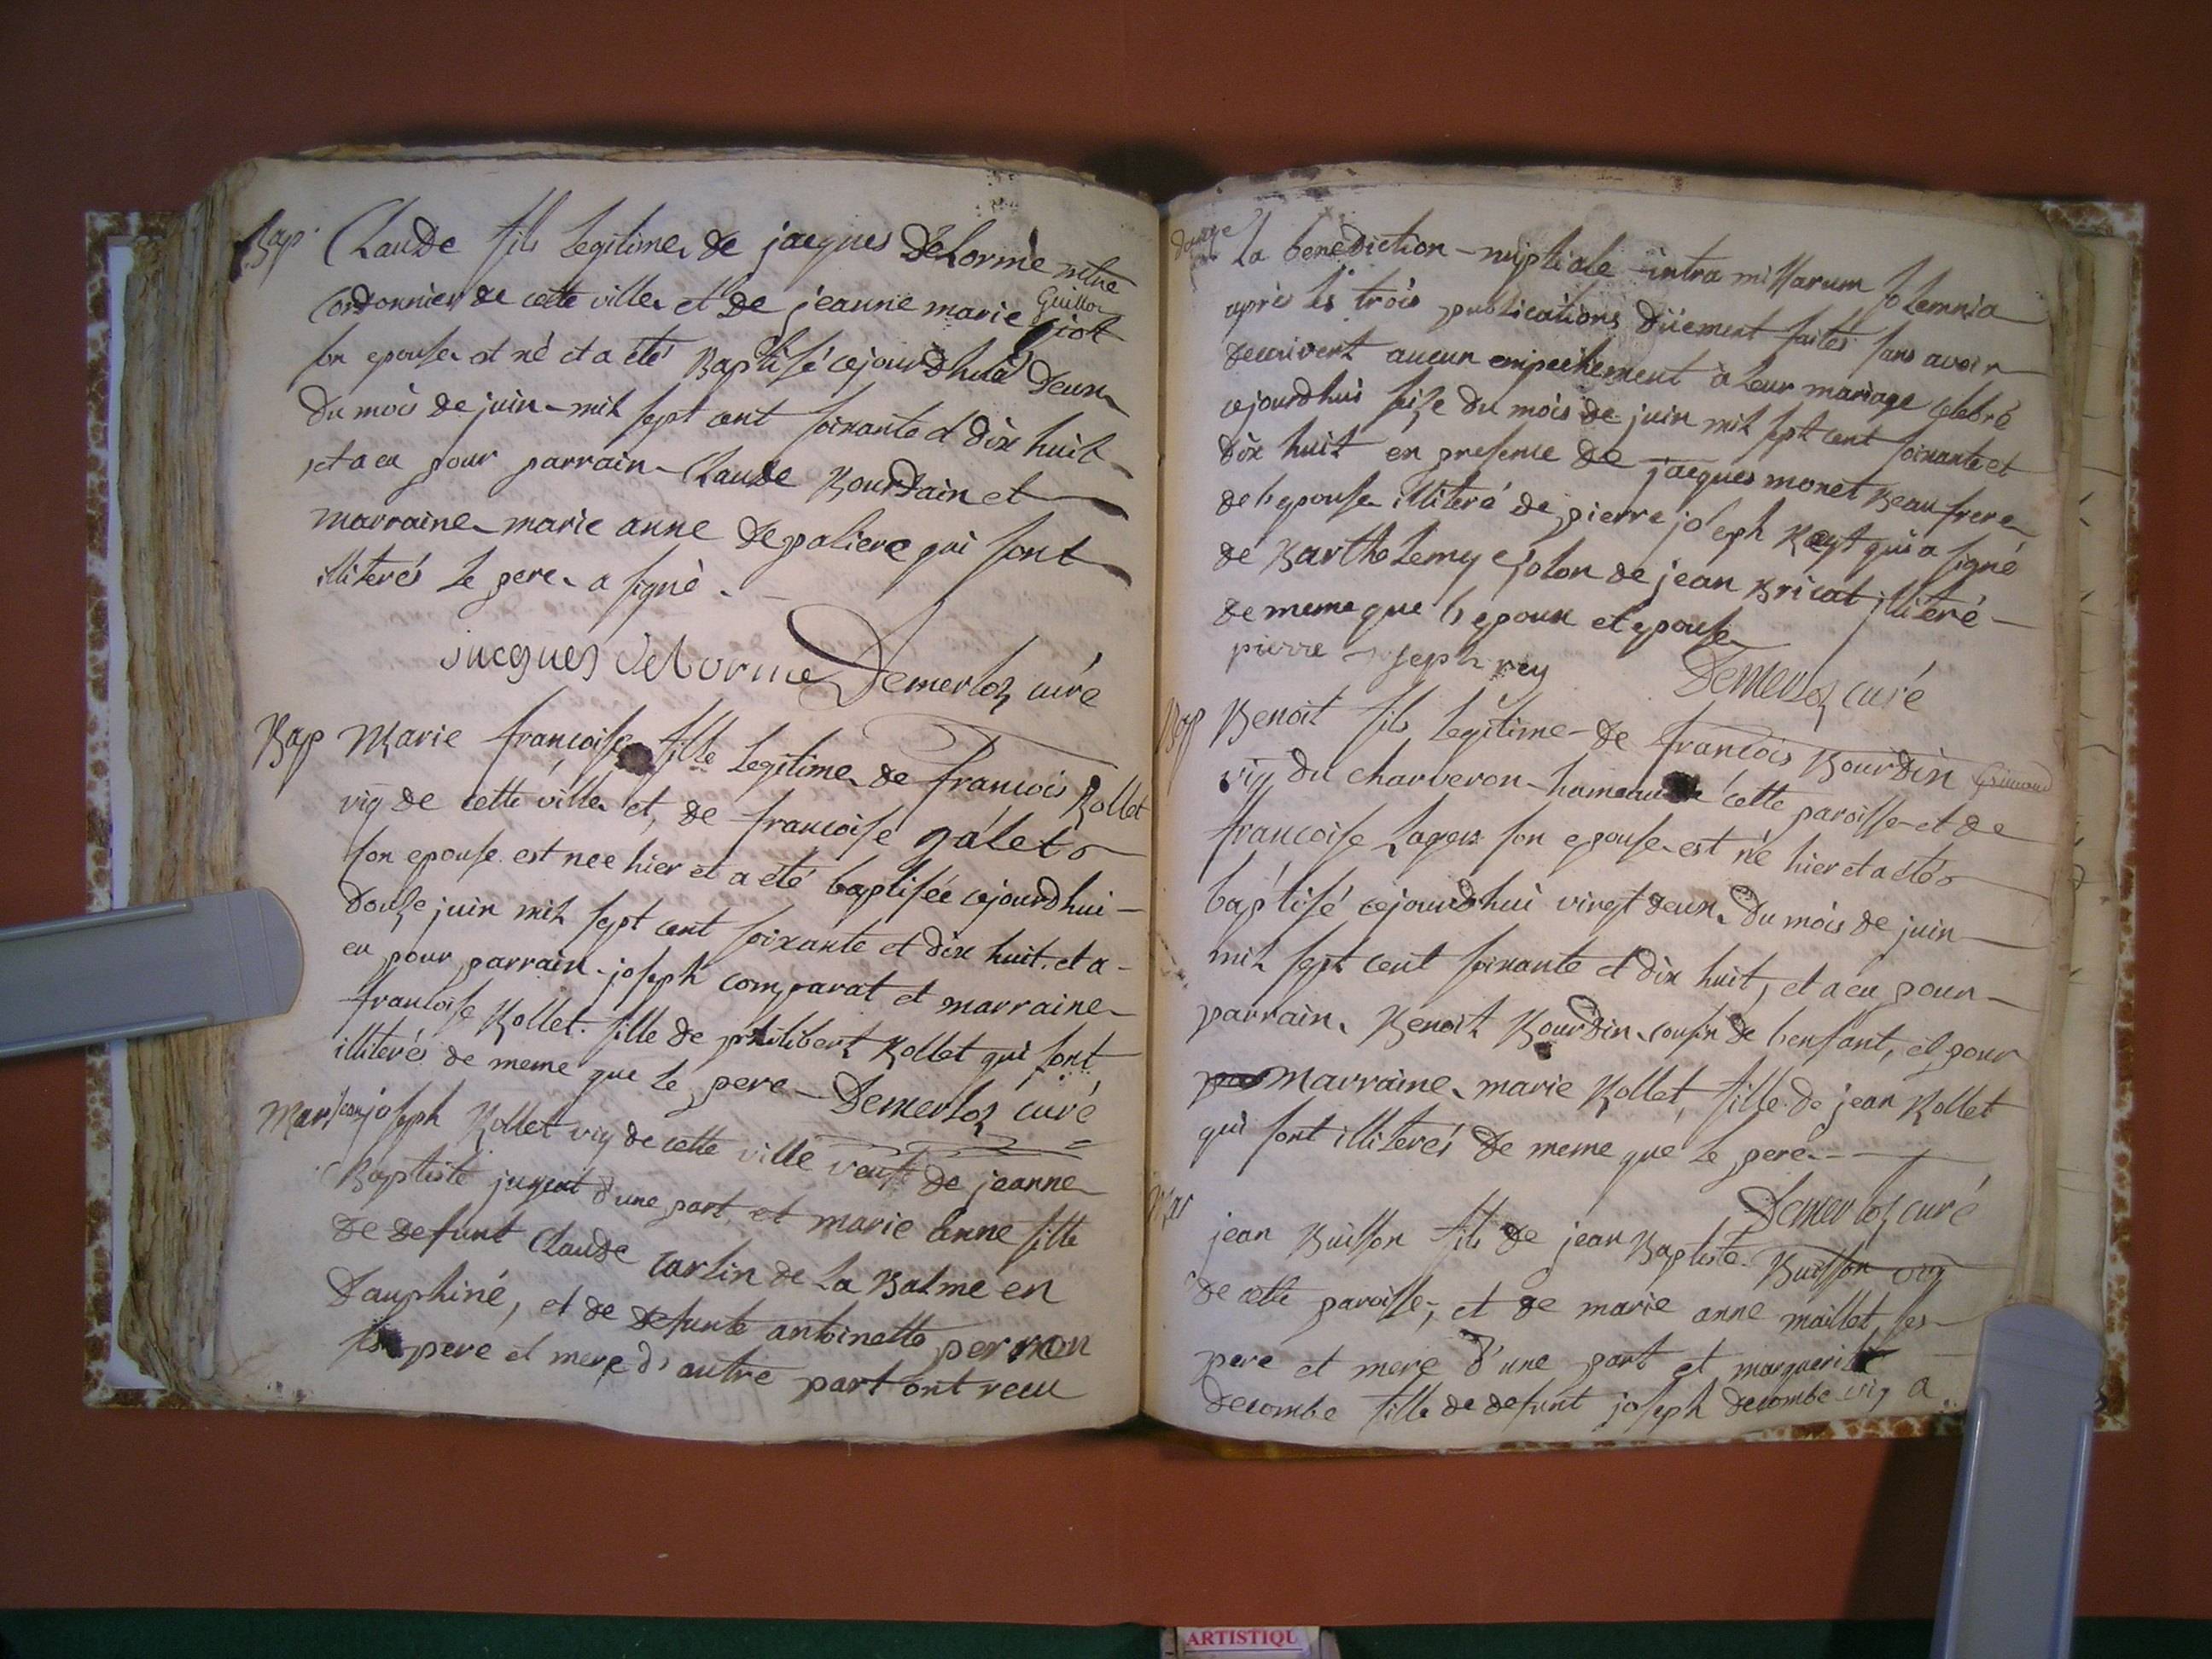 Bap. Claude fils legitime de jacques Delorme mtre
Cordonnier de cette ville et de jeanne marie Guillot
son epouse est né et a été Baptisé cejourdhui deux
du mois de juin mil sept cent soixante et dix huit
et a eu pour parrain Claude Bourdain et
marraine marie anne depaliere qui sont
illiterés le pere a signé.
jacques Delorme Demerloz curé
Bap Marie françoise fille legitime de françois Rollet
vig de cette ville et, de francoise galet
son epouse est née hier et a été baptisée cejourdhui
douze juin mil sept cent soixante et dix huit. et a
eu pour parrain joseph comparat et marraine
francoise Rollet fille de philibert Rollet qui sont
illiterés de meme que le pere Demerloz curé
Mar joseph Rollet vig de cette ville veuf de jeanne
Baptiste d'une part, et marie anne fille
de defunt Claude Carlin de la Balme en
Dauphiné, et de defunte antoinette perron
ses pere et mere d'autre part ont recu
la benediction nuptiale intra missarum solemnia
aprés les trois publications düement faites sans avoir
decouvert aucun empechement à leur mariage celebré
cejourdhui seize du mois de juin mil sept cent soixante et
dix huit en presence de jacques monet Beau frere
de l'epouse illiteré de pierre joseph Rey qui a signé
de Barthelemy de jean Bricat illiteré
de meme que l'epoux et epouse
pierre joseph rey Demerloz curé
Bap Benoit fils legitime de francois Bourdin Grimaud
vig du charveron hameau de cette paroisse et de
francoise Lager son epouse est né hier et a été
baptisé cejourdhui vingt deux du mois de juin
mil sept cent soixante et dix huit, et a eu pour
parrain Benoit Bourdin cousin de l'enfant, et pour
marraine marie Rollet, fille de jean Rollet
qui sont illiterés de meme que le pere
Demerloz curé
Mar jean Buisson fils de jean Baptiste Buisson vig
de cette paroisse, et de marie anne maillet ses
pere et mere d'une part et marguerite
decombe fille de defunt joseph decombe vig a
ARTISTIQU